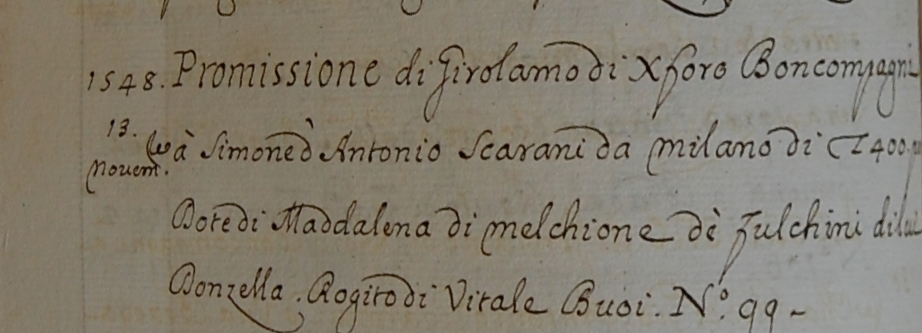 1548. Promissione di Girolamo di Xforo Boncompagni
13. Novem.bre à Simone d'Antonio Scarani da Milano di 400
Dote di Maddalena di Melchione dè fulchini di lui
Donzella. Rogito di Vitale Buoi. N.º 99-